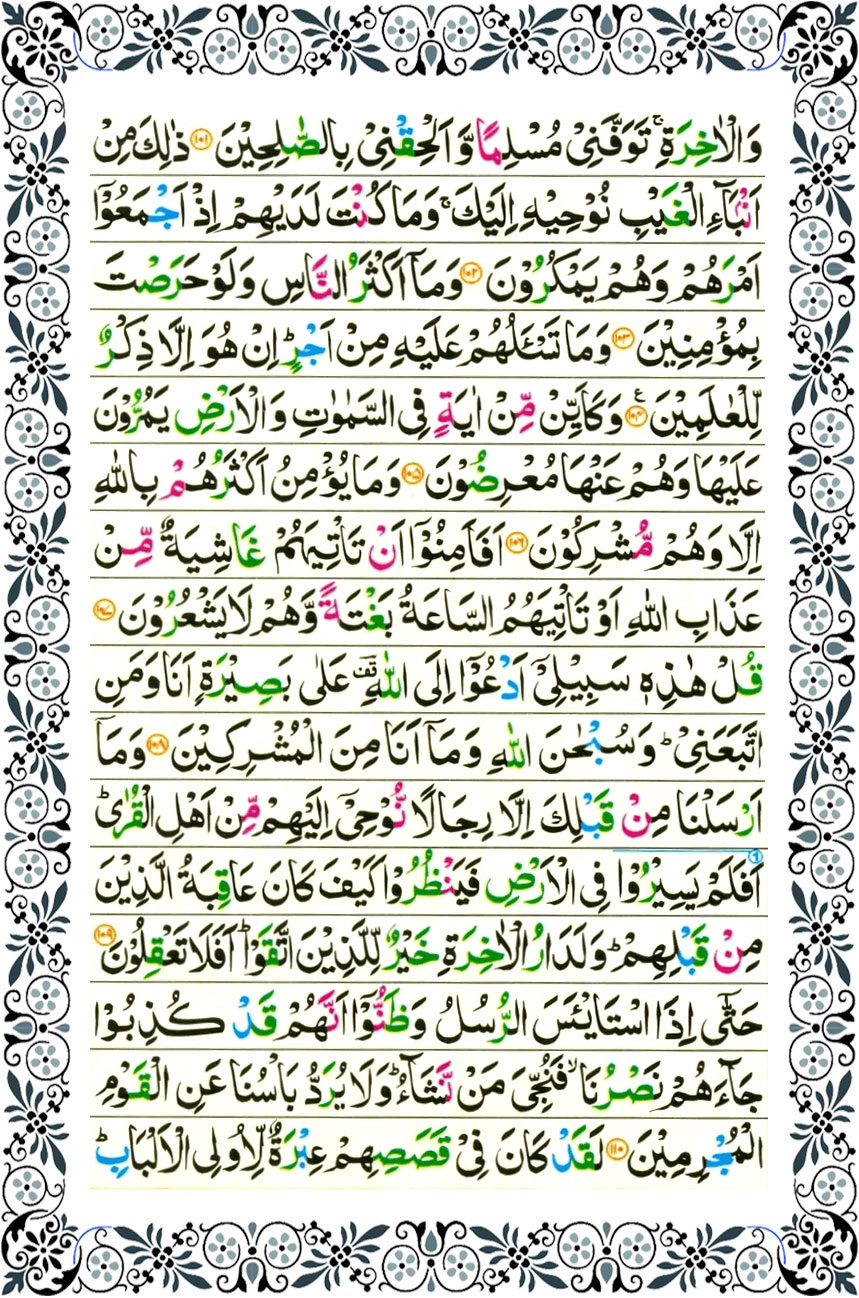 وَالْاٰخِرَةِ ۚ تَوَفَّنِىْ مُسْلِمًا وَّاَلْحِقْنِىْ بِالصّٰلِحِيْنَ ﴿۱۰۱﴾ ذٰلِكَ مِنْ
اَنْۢبَآءِ الْغَيْبِ نُوْحِيْهِ اِلَيْكَ ۚ وَمَا كُنْتَ لَدَيْهِمْ اِذْ اَجْمَعُوْۤا
اَمْرَهُمْ وَهُمْ يَمْكُرُوْنَ ﴿۱۰۲﴾ وَمَاۤ اَكْثَرُ النَّاسِ وَلَوْ حَرَصْتَ
بِمُؤْمِنِيْنَ ﴿۱۰۳﴾ وَمَا تَسْـَٔلُهُمْ عَلَيْهِ مِنْ اَجْرٍ ؕ اِنْ هُوَ اِلَّا ذِكْرٌ
لِّلْعٰلَمِيْنَ ﴿۱۰۴﴾ ع وَكَاَيِّنْ مِّنْ اٰيَةٍ فِى السَّمٰوٰتِ وَالْاَرْضِ يَمُرُّوْنَ
عَلَيْهَا وَهُمْ عَنْهَا مُعْرِضُوْنَ ﴿۱۰۵﴾ وَمَا يُؤْمِنُ اَكْثَرُهُمْ بِاللّٰهِ
اِلَّا وَهُمْ مُّشْرِكُوْنَ ﴿۱۰۶﴾ اَفَاَمِنُوْۤا اَنْ تَاْتِيَهُمْ غَاشِيَةٌ مِّنْ
عَذَابِ اللّٰهِ اَوْ تَاْتِيَهُمُ السَّاعَةُ بَغْتَةً وَّهُمْ لَا يَشْعُرُوْنَ ﴿۱۰۷﴾
قُلْ هٰذِهٖ سَبِيْلِىْۤ اَدْعُوْۤا اِلَى اللّٰهِ ؔقف عَلٰى بَصِيْرَةٍ اَنَا وَمَنِ
اتَّبَعَنِىْ ؕ وَسُبْحٰنَ اللّٰهِ وَمَاۤ اَنَا مِنَ الْمُشْرِكِيْنَ ﴿۱۰۸﴾ وَمَاۤ
اَرْسَلْنَا مِنْ قَبْلِكَ اِلَّا رِجَالًا نُّوْحِىْۤ اِلَيْهِمْ مِّنْ اَهْلِ الْقُرٰى ؕ
اَفَلَمْ يَسِيْرُوْا فِى الْاَرْضِ فَيَنْظُرُوْا كَيْفَ كَانَ عَاقِبَةُ الَّذِيْنَ
مِنْ قَبْلِهِمْ ؕ وَلَدَارُ الْاٰخِرَةِ خَيْرٌ لِّلَّذِيْنَ اتَّقَوْا ؕ اَفَلَا تَعْقِلُوْنَ ﴿۱۰۹﴾
حَتّٰۤى اِذَا اسْتَايْـَٔسَ الرُّسُلُ وَظَنُّوْۤا اَنَّهُمْ قَدْ كُذِبُوْا
جَآءَهُمْ نَصْرُنَا ۙ فَنُجِّىَ مَنْ نَّشَآءُ ؕ وَلَا يُرَدُّ بَاْسُنَا عَنِ الْقَوْمِ
الْمُجْرِمِيْنَ ﴿۱۱۰﴾ لَقَدْ كَانَ فِىْ قَصَصِهِمْ عِبْرَةٌ لِّاُولِى الْاَلْبَابِ ؕ